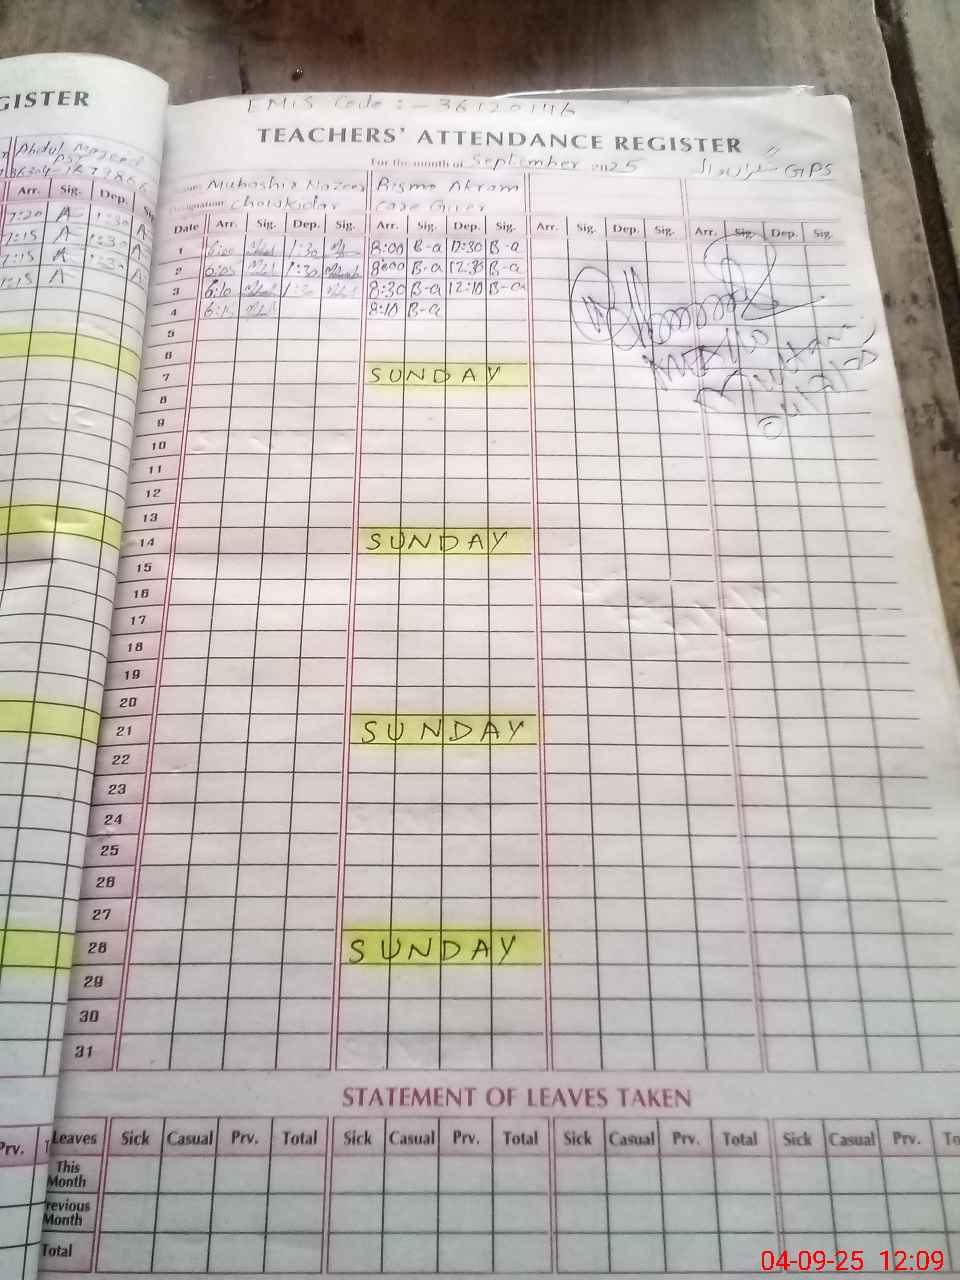 GISTER
Abdul Majeed
PST
Arr. Sig. Dep. Sig
7:20 A 1:30 A
7:15 A 1:30 A
7:15 A 1:30 A
7:15 A
Prv.
EMIS Code :- 36120146
TEACHERS' ATTENDANCE REGISTER
For the month of September 2025 GPS
Mubashir Nazeer Bisma Akram
Designation Chowkidar Care Giver
Date Arr. Sig. Dep. Sig. Arr. Sig. Dep. Sig. Arr. Sig. Dep. Sig. Arr. Sig. Dep. Sig.
1 6:00 1:30 8:00 B-a 12:30 B-a
2 6:05 1:30 8:00 B-a 12:30 B-a
3 6:10 1:30 8:30 B-a 12:10 B-a
4 6:15 8:10 B-a
5
6
7 SUNDAY
8
9
10
11
12
13
14 SUNDAY
15
16
17
18
19
20
21 SUNDAY
22
23
24
25
26
27
28 SUNDAY
29
30
31
STATEMENT OF LEAVES TAKEN
Leaves Sick Casual Prv. Total Sick Casual Prv. Total Sick Casual Prv. Total Sick Casual Prv. To
This
Month
revious
Month
Total
04-09-25 12:09